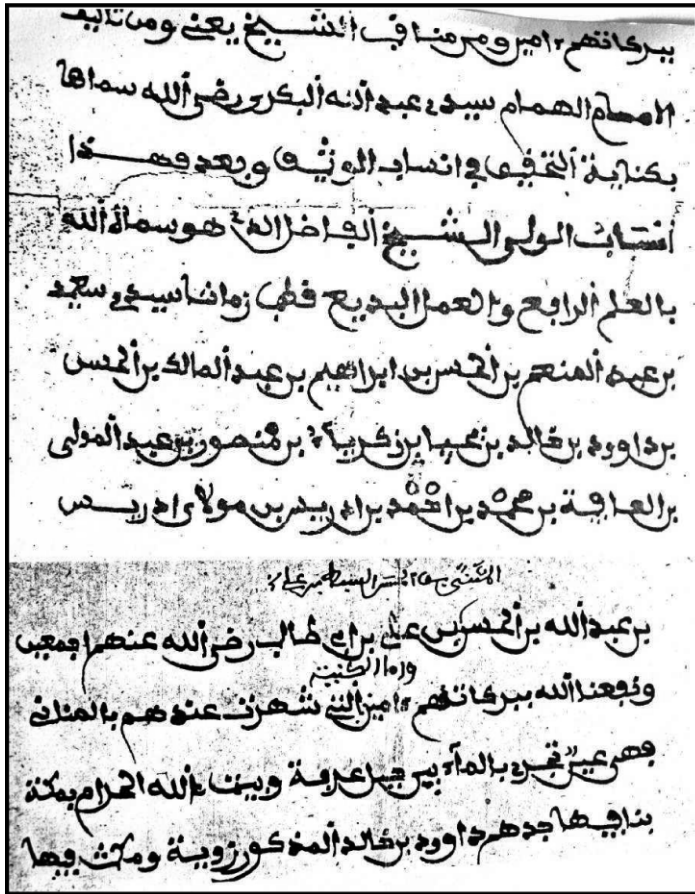 ببركاتهم ءامين ومن مناقب الشيخ يعني ومن تاليف
الامام الهمام سيدي عبد الله البكري رضي الله سماها
بكناية التحقيق في انساب الوثيق وبعد فهذا
انتساب الولي الشيخ الفاضل الذي هو سماه الله
بالعلم الرافع والعمل البديع قطب زماننا سيدي سعيد
بن عبد المنعم بن الحسن بن ابراهيم بن عبد المالك بن الحسن
بن داوود بن خالد بن يحيا بن زكرياء بن منصور بن عبد المولى
بن العافية بن محمد بن احمد بن ادريس بن مولاي ادريس
المثنى بن الحسن السبط بن علي
بن عبد الله بن الحسن بن علي بن ابي طالب رضي الله عنهم اجمعين
واما الكنية
ونفعنا الله ببركاتهم ءامين التي شهرت عندهم بالمناني
فهي عين تجري بالماء بين جبل عرفة وبيت الله الحرام بمكة
بنا فيها جدهم داوود بن خالد المذكور زوينة ومكث فيها